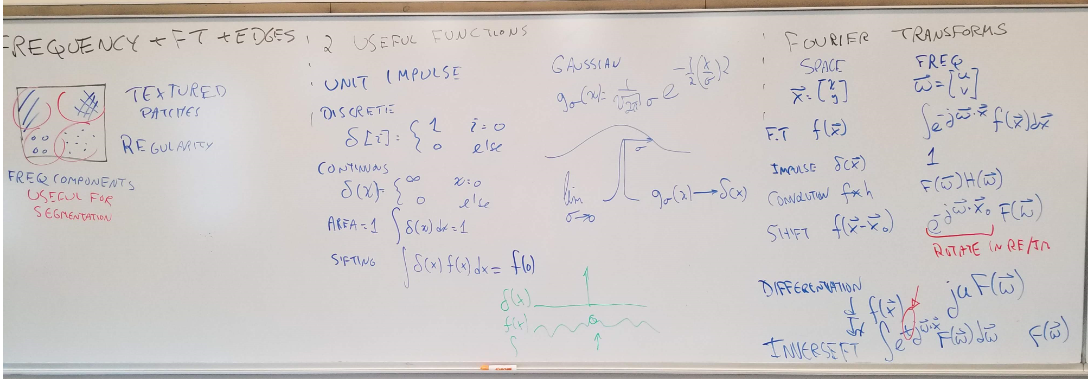 FREQUENCY + FT + EDGES
TEXTURED
PATCHES
REGULARITY
FREQ COMPONENTS
USEFUL FOR
SEGMENTATION
2 USEFUL FUNCTIONS
UNIT IMPULSE
DISCRETE
δ[i] = { 1 i=0
0 else
CONTINUOUS
δ(x) = { ∞ x=0
0 else
AREA = 1 ∫δ(x)dx = 1
SIFTING ∫δ(x)f(x)dx = f(0)
δ(x)
f(x)
∫
GAUSSIAN
gσ(x) = 1/(√2π σ) e^(-1/2 (x/σ)²)
σ
lim σ→0 gσ(x) → δ(x)
FOURIER TRANSFORMS
SPACE FREQ
x⃗ = [x y] ω⃗ = [u v]
F.T f(x⃗) ∫e^(-jω⃗·x⃗) f(x⃗)dx⃗
IMPULSE δ(x⃗) 1
CONVOLUTION f*h F(ω⃗)H(ω⃗)
SHIFT f(x⃗-x⃗₀) e^(-jω⃗·x⃗₀) F(ω⃗)
ROTATE IN RE/IM
DIFFERENTIATION
d/dx f(x⃗) juF(ω⃗)
INVERSE FT ∫e^(+jω⃗·x⃗) F(ω⃗)dω⃗ F(ω⃗)